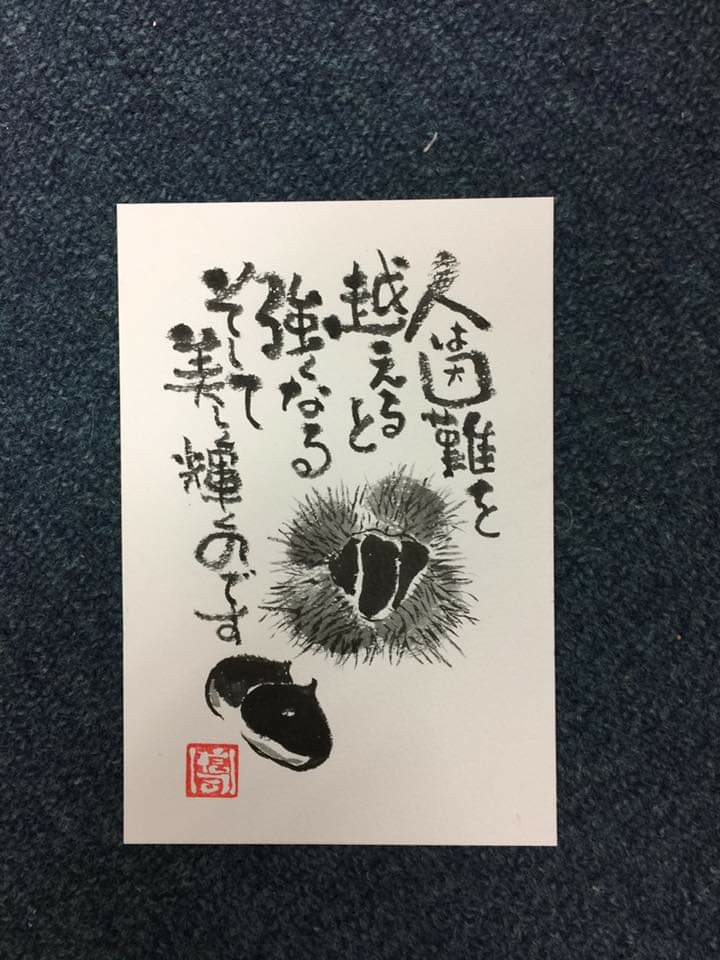 人は困難を
越えると
強くなる
そして
美しく輝くのです